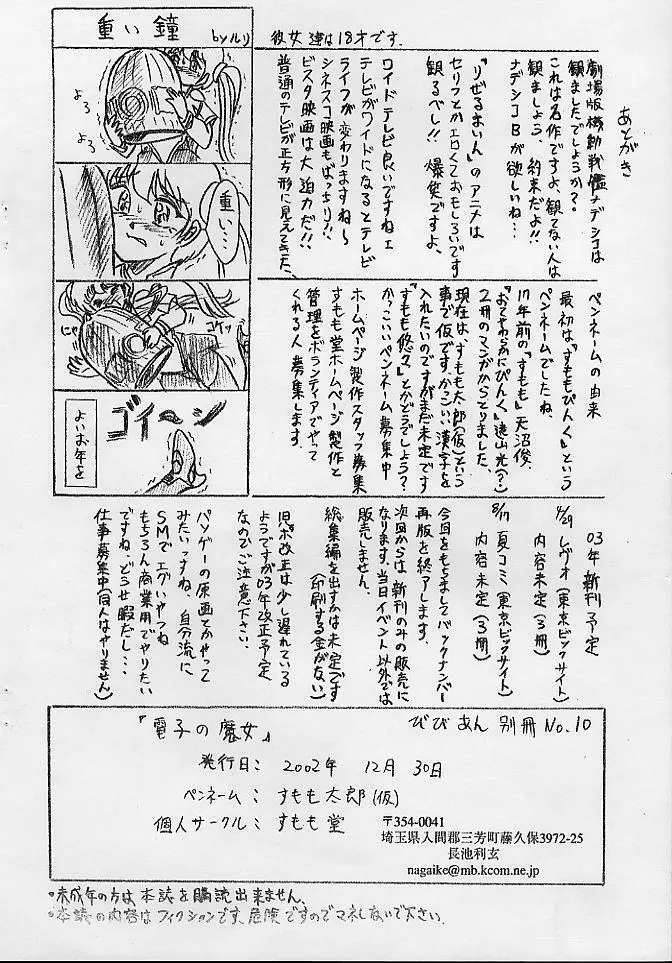 重い鐘
byルリ
よろ
よろ
重い…
にゃ
コケッ
ゴイ〜ン
よいお年を
彼女達は18才です.
あとがき
劇場版機動戦艦ナデシコは
観ましたでしょうか?
これは名作ですよ、観てない人は
観ましょう、約束だよ!!
ナデシコBが欲しいね…
『りぜるまいん』のアニメは
セリフとかエロくておもしろいです
観るべし!! 爆笑ですよ、
ワイドテレビ良いですねェ
テレビがワイドになるとテレビ
ライフが変わりますね〜
シネスコ映画もばっちり!!
ビスタ映画は大迫力だ!!
普通のテレビが正方形に見えてきた、
ペンネームの由来
最初は『すももぴんく』という
ペンネームでしたね、
17年前の『すもも』天沼俊、
『おてやわらかにぴんく』遠山光(?)
2冊のマンガからとりました、
現在は、すもも太郎(仮)という
事で仮です、かっこいい漢字を
入れたいのですがまだ未定です
『すもも悠々』とかどうでしょう?
かっこいいペンネーム募集中
ホームページ製作スタッフ募集
すもも堂ホームページ製作と
管理をボランティアでやって
くれる人 募集します、
03年 新刊予定
4/29 レヴォ(東京ビックサイト)
内容未定(3冊)
8/17 夏コミ(東京ビックサイト)
内容未定(3冊)
今回をもちましてバックナンバー
再版を終了します、
次回からは、新刊のみの販売に
なります、当日イベント以外では
販売しません、
総集編を出すかは未定です
(印刷する金がない)
旧ポ改正は少し遅れている
ようですが03年改正予定
なのでご注意下さい、
パソゲーの原画とかやって
みたいっすね、自分流に
SMでエグいやつね
もちろん商業用でやりたい
ですね、どうせ暇だし…
仕事募集中(同人はやりません)
『電子の魔女』
びびあん 別冊 No.10
発行日: 2002年 12月 30日
ペンネーム: すもも太郎(仮)
個人サークル: すもも堂
〒354-0041
埼玉県入間郡三芳町藤久保3972-25
長池利玄
nagaike@mb.kcom.ne.jp
•未成年の方は、本誌を購読出来ません、
•本誌の内容はフィクションです、危険ですのでマネしないで下さい.